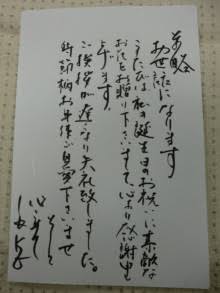 前略
お世話になります
このたびは私の誕生日のお祝いに素敵な
お花をお贈り下さいまして、心より感謝申し
上げます。
ご挨拶が遅くなり失礼致しました。
時節柄お身体ご自愛下さいませ